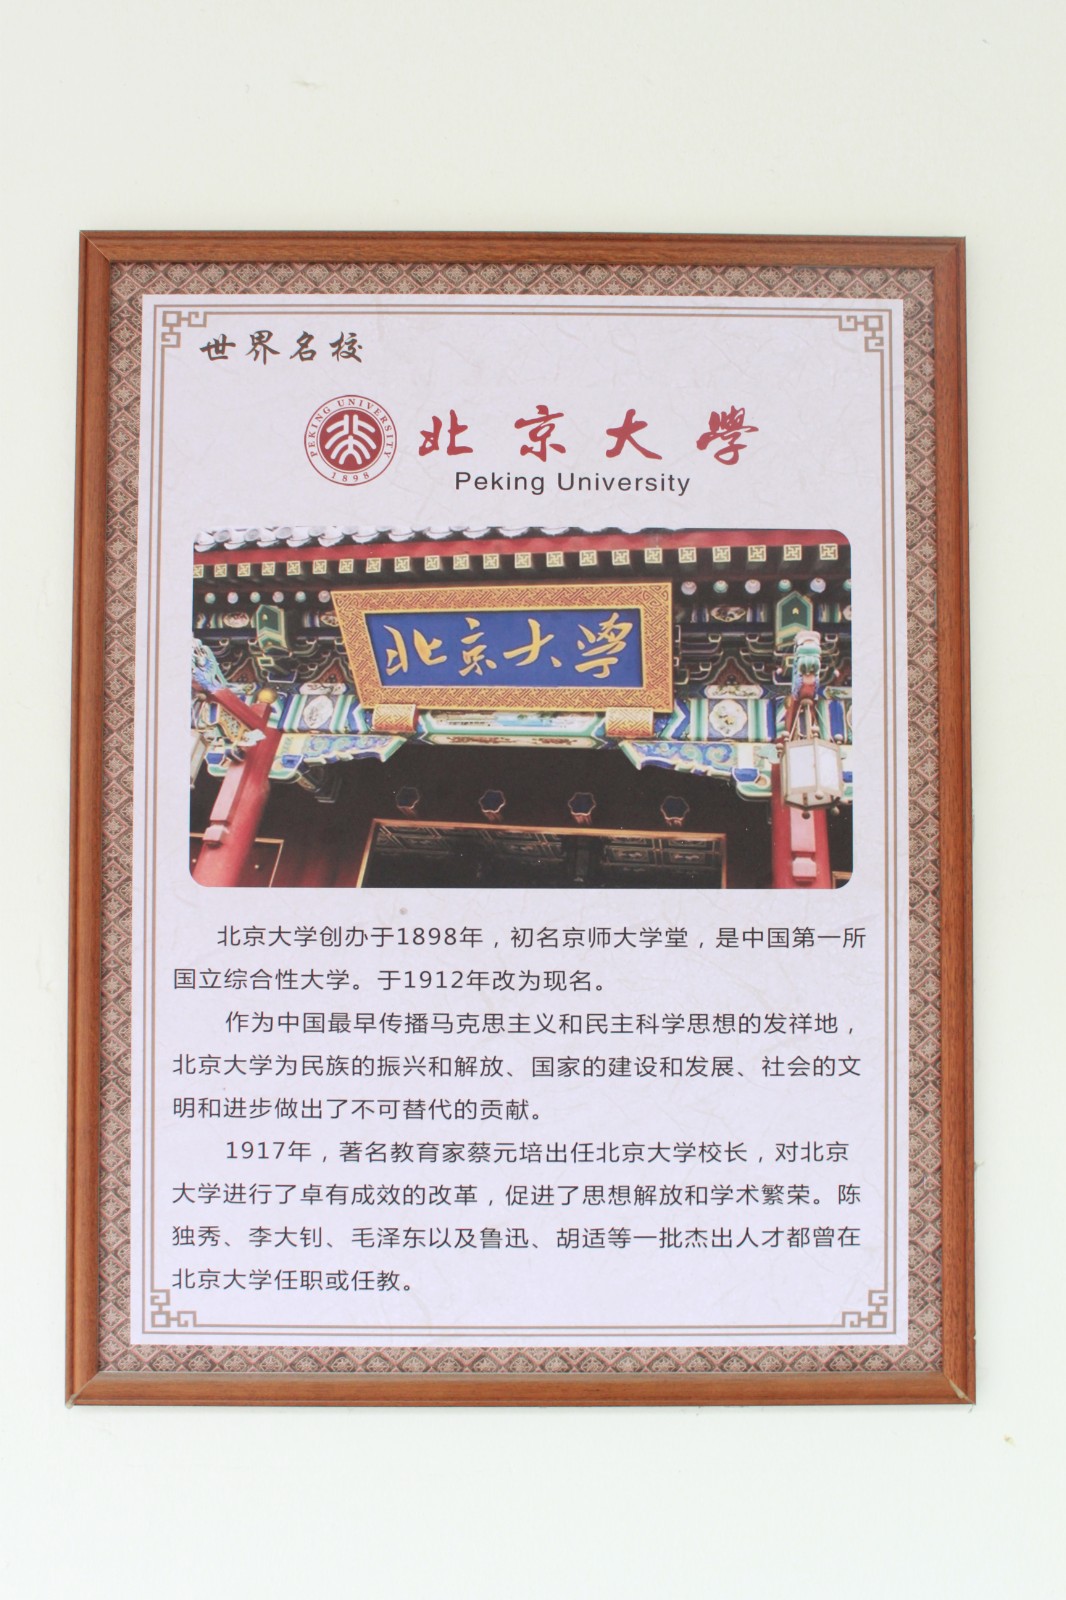 世界名校
PEKING UNIVERSITY
1898
北京大學
Peking University
北京大学
北京大学创办于1898年，初名京师大学堂，是中国第一所
国立综合性大学。于1912年改为现名。
作为中国最早传播马克思主义和民主科学思想的发祥地，
北京大学为民族的振兴和解放、国家的建设和发展、社会的文
明和进步做出了不可替代的贡献。
1917年，著名教育家蔡元培出任北京大学校长，对北京
大学进行了卓有成效的改革，促进了思想解放和学术繁荣。陈
独秀、李大钊、毛泽东以及鲁迅、胡适等一批杰出人才都曾在
北京大学任职或任教。